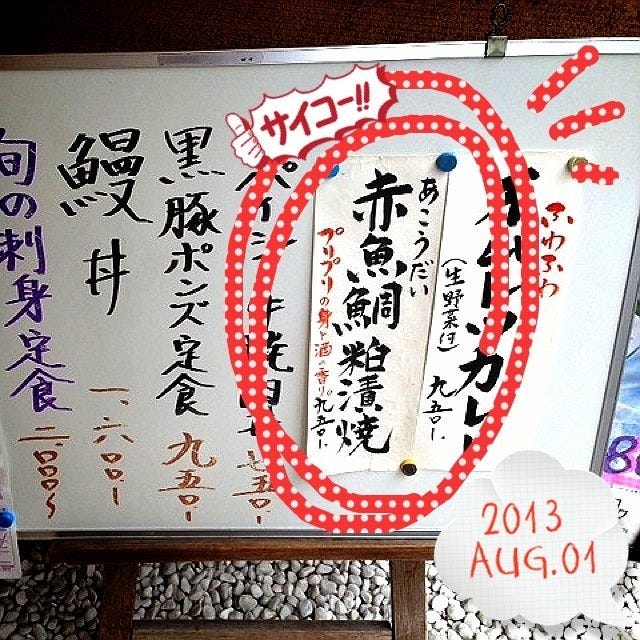 サイコー!!
ふわふわ
カレー
(生野菜付)
九五〇、
あこうだい
赤魚鯛粕漬焼
プリプリの身と酒の香り。
九五〇、
七五〇、
黒豚ポンズ定食
九五〇、
鰻丼
一、六〇〇、
旬の刺身定食
二、〇〇〇〜
2013
AUG.01